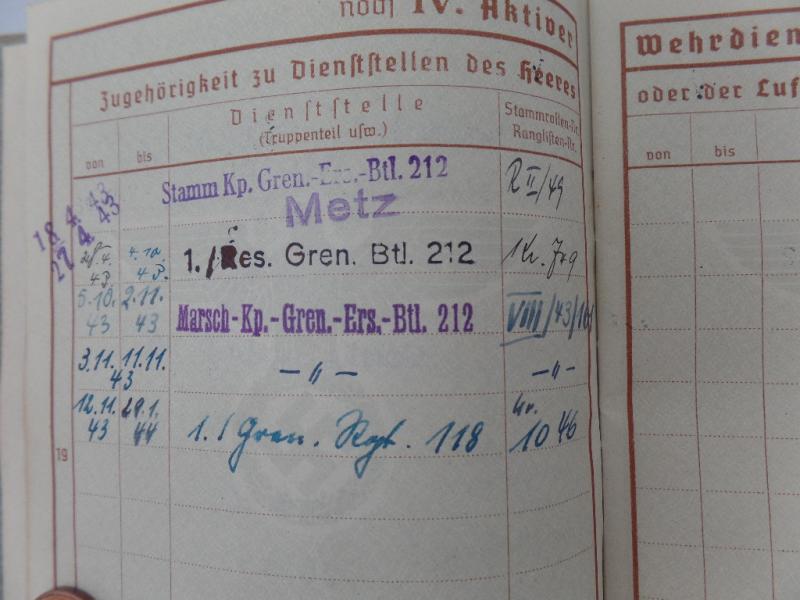 noch IV. Aktiver
Zugehörigkeit zu Dienststellen des Heeres
von
bis
Dienststelle
(Truppenteil usw.)
Stammrollen-Nr.
Ranglisten-Nr.
18. 4. 43
27. 4. 43
Stamm Kp. Gren.-Ers.-Btl. 212
Metz
R II/49
4. 10.
1./Res. Gren. Btl. 212
5.10. 2.11.
43 43
Marsch-Kp.-Gren.-Ers.-Btl. 212
VIII/43/
3.11. 11.11.
43
— " —
— " —
12.11. 29.1.
43 44
1./ Gren. Rgt. 118
Nr.
1046
19
Wehrdien
oder der Luf
von
bis